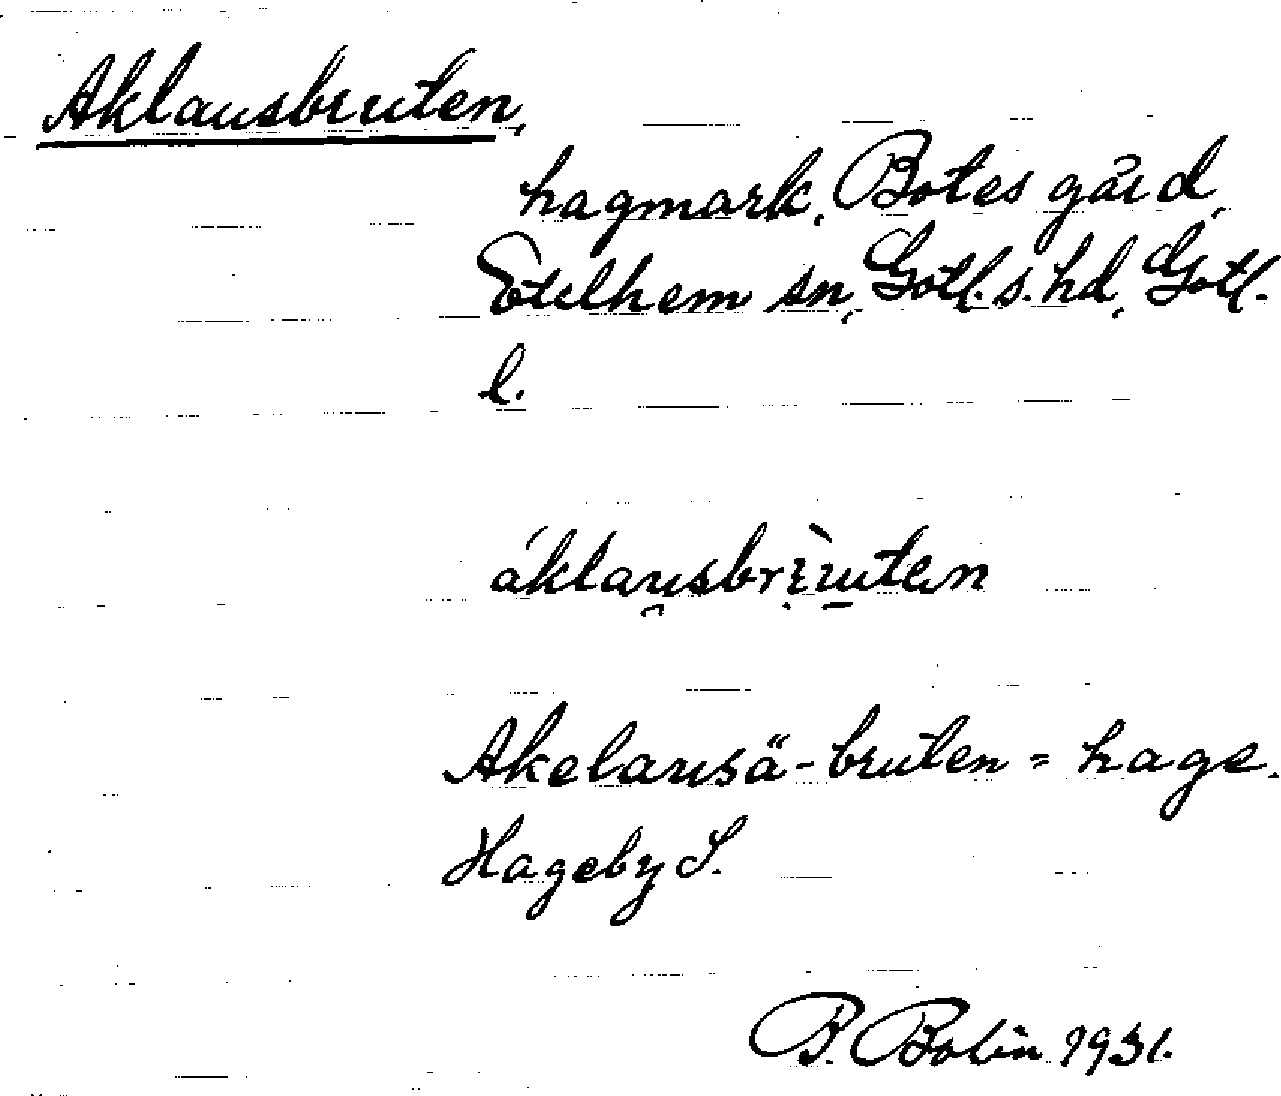 Aklausbruten,
hagmark, Botes gård,
Etelhem sn, Gotl. s. hd, Gotl.
l.
áklau̯sbrị̀u̱ten
Akelausä-bruten = hage.
Hageby S.
B. Bolin 1931.